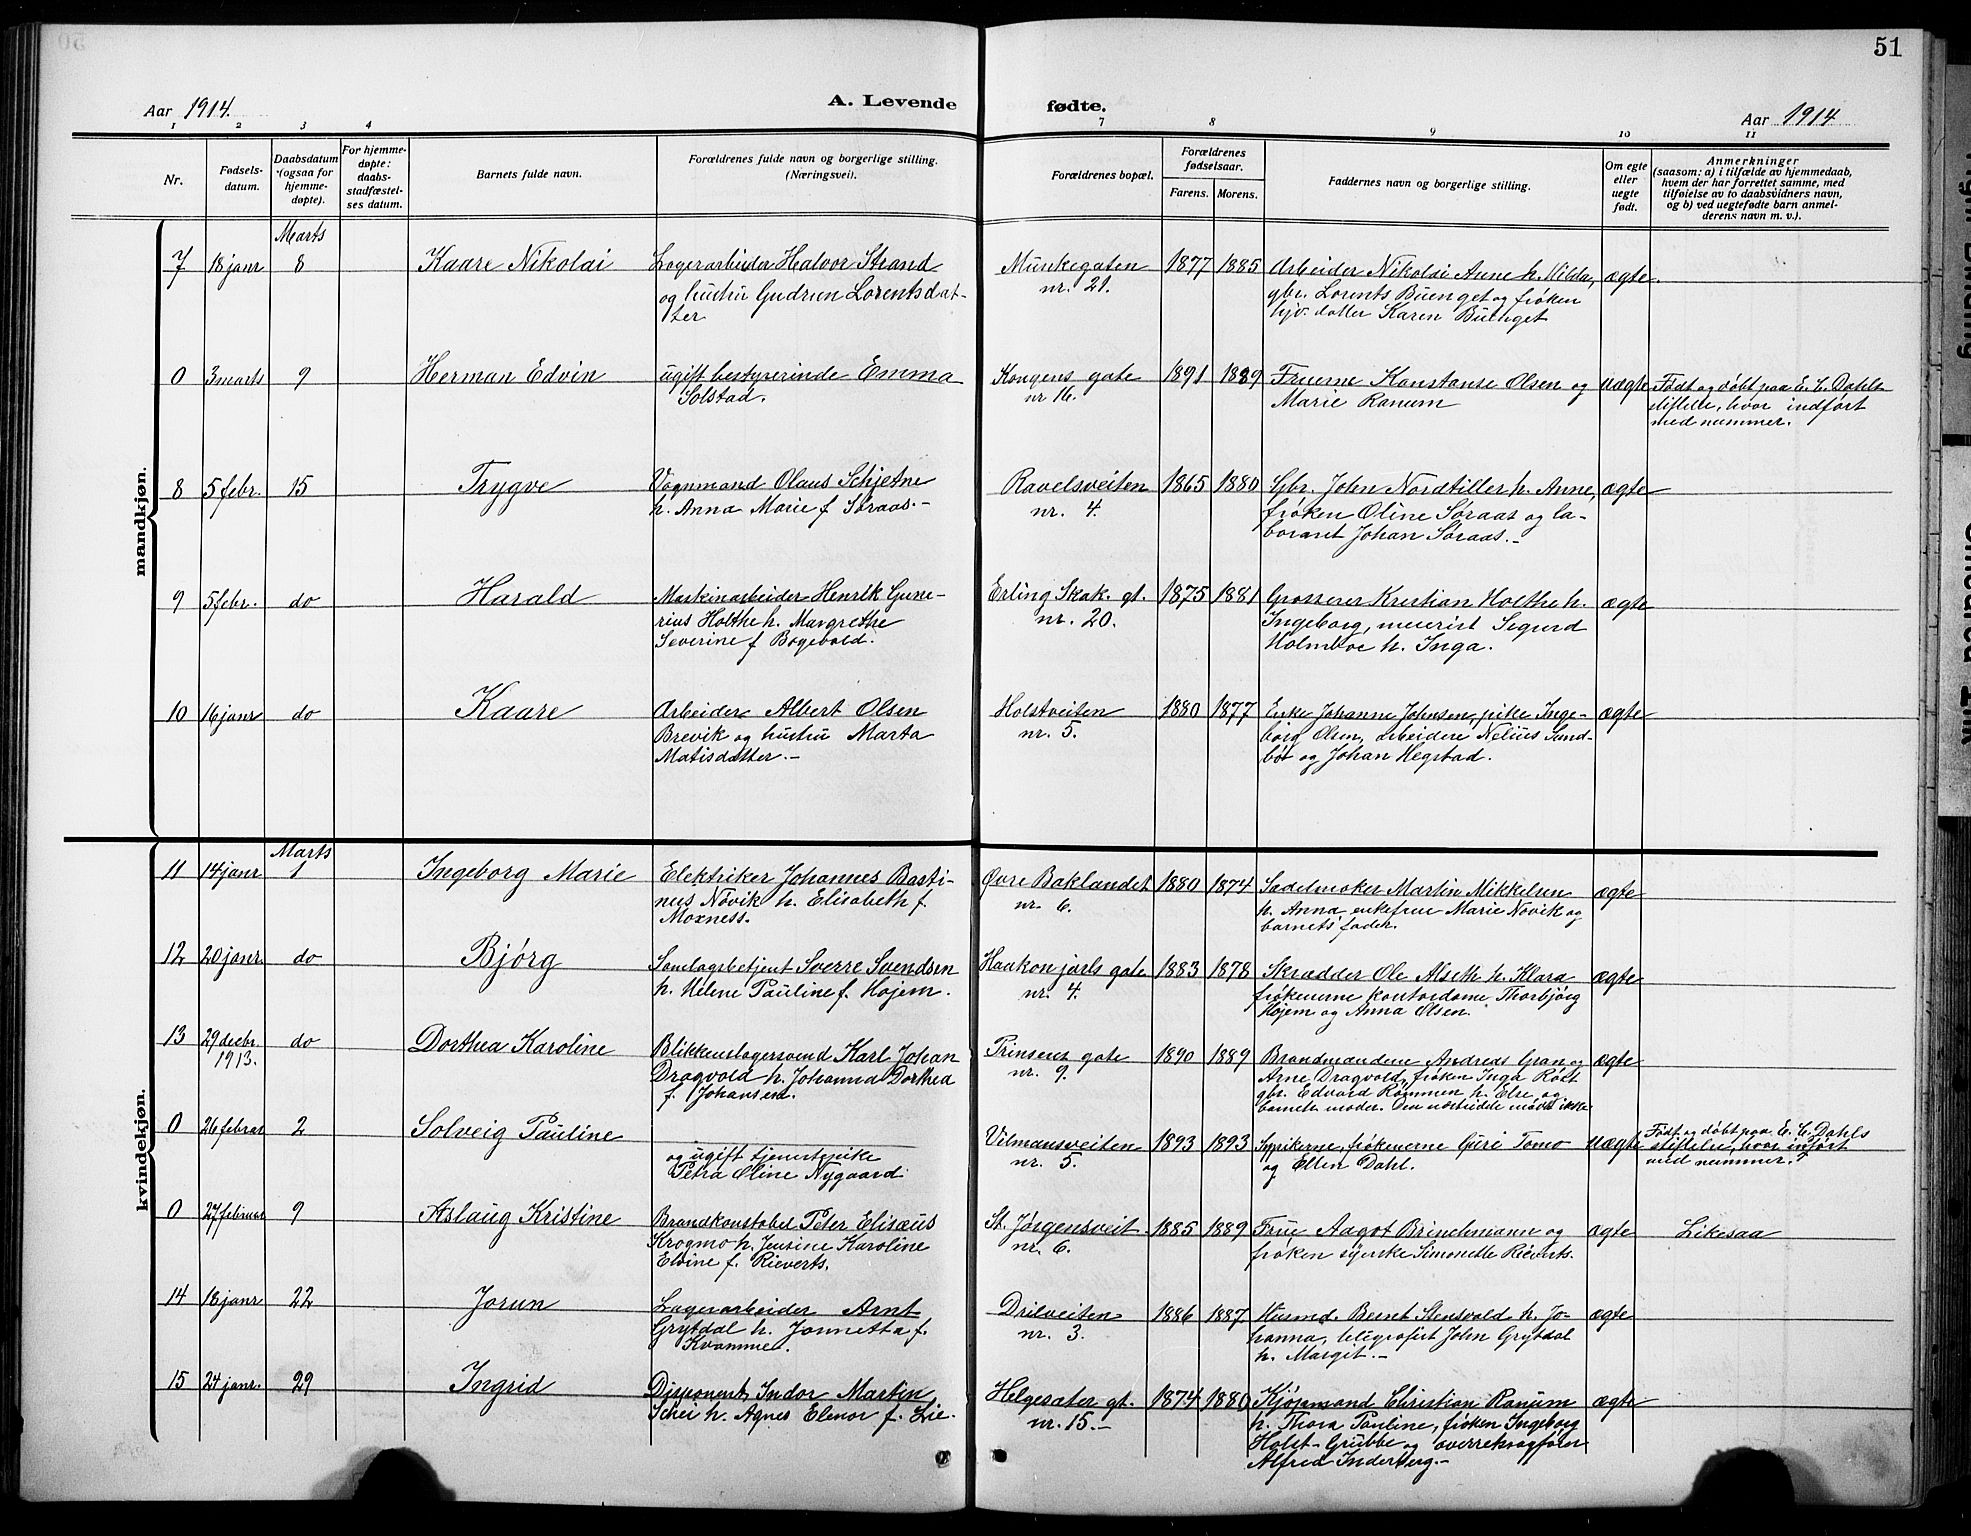 51
Aar 1914. A. Levende fødte. Aar 1914
1 2 3 4 7 8 9 10 11
Nr.
Fødsels-
datum.
Daabsdatum
(ogsaa for
hjemme-
døpte).
For hjemme-
døpte:
daabs-
stadfæstel-
ses datum.
Barnets fulde navn.
Forældrenes fulde navn og borgerlige stilling.
(Næringsvei).
Forældrenes bopæl.
Forældrenes
fødselsaar.
Farens. Morens.
Faddernes navn og borgerlige stilling.
Om egte
eller
uegte
født.
Anmerkninger
(saasom: a) i tilfælde av hjemmedaab,
hvem der har forrettet samme, med
tilføielse av to daabsvidners navn,
og b) ved uegtefødte barn anmel-
derens navn m. v.).
mandkjøn.
Marts
7 18 janr 8 Kaare Nikolai
Lagerarbeider Halvor Strand
og hustru Gudrun Lorentsdat-
ter
Munkegaten
nr. 21.
1877 1885
Arbeider Nikolai Aune h. Hilda,
gbr. Lorents Buenget og frøken
hjv. datter Karen Buenget
ægte
0 3 marts 9 Herman Edvin
ugift bestyrerinde Emma
Solstad.
Kongens gate
nr 16.
1891 1889
Fruerne Konstanse Olsen og
Marie Ranum
uægte
Født og døbt paa E. C. Dahls
stiftelse, hvor indført
med nummer.
8 5 febr. 15 Trygve
Vognmand Olaus Schjetne
h. Anna Marie f Søraas.-
Ravelsveiten
nr. 4.
1865 1880
Gbr. John Nordtiller h. Anne,
frøken Oline Søraas og la-
borant Johan Søraas.-
ægte
9 5 febr. do Harald
Maskinarbeider Henrik Gune-
rius Holthe h. Margrethe
Severine f Bogebold.
Erling Skak. gt.
nr. 20.
1875 1881
Grosserer Kristian Holthe h.
Ingeborg, meierist Sigurd
Holmboe h. Inga.
ægte
10 16 janr do Kaare
Arbeider Albert Olsen
Brevik og hustru Marta
Matisdatter.-
Holstveiten
nr. 5.
1880 1877
Enke Johanne Johnsen, pike Inge-
borg Olsen, arbeidere Nelius Sund-
bør og Johan Hegstad.
ægte
kvindekjøn.
Marts
11 14 janr 1 Ingeborg Marie
Elektriker Johannes Basti-
nus Növik h. Elisabeth f.
Moxness.
Øvre Baklandet
nr. 6.
1880 1874
Sadelmaker Martin Mikkelsen
h. Anna, enkefrue Marie Növik og
barnets fader.
ægte
12 20 janr. do Bjørg
Samlagsbetjent Sverre Svendsen
h. Helene Pauline f. Højem.
Haakon jarls gate
nr. 4.
1883 1878
Skrædder Ole Alseth h. Klara
frøkenerne kontordame Thorbjørg
Højem og Anna Olsen.
ægte
13 29 decbr 1913. do Dorthea Karoline
Blikkenslagersvend Karl Johan
Dragvold h. Johanna Dorthea
f. Johansen.
Prinsens gate
nr. 9.
1890 1889
Brandmændene Andreas Gran og
Arne Dragvold, frøken Inga Röst
gbr. Edvard Rømmen h. Else og
barnets moder. Den næstsidste mødte ikke
ægte
0 26 februar 2 Solveig Pauline
og ugift tjenestepike
Petra Oline Nygaard.
Vilmansveiten
nr. 5.
1893 1893
Sypikerne, frøkenerne Guri Tomo
og Ellen Dahl.
uægte
Født og døbt paa E. C. Dahls
stiftelse, hvor inført
med nummer.
0 27 februar 9 Aslaug Kristine
Brandkonstabel Peter Elisæus
Krogmo h. Jensine Karoline
Elvine f. Rieverts.
St. Jørgensveit.
nr. 6.
1885 1889
Frue Aagot Brinchmann og
frøken syerske Simonette Rieverts.
ægte
Likesaa
14 18 janr 22 Jorun
Lagerarbeider Arnt
Grytdal h. Jonnetta f.
Kvammen.
Drilveiten
nr. 3.
1886 1887
Husmd. Bernt Stensvold h. Jo-
hanna, telegrafist John Grytdal
h. Margit.-
ægte
15 24 janr. 29 Ingrid
Disponent Indor Martin
Schei h. Agnes Elenor f. Lie.
Helgesæter gt.
nr. 15.-
1874 1880
Kjøpmand Christian Ranum
h. Thora Pauline, frøken Ingeborg
Holst-Grubbe og overretssagfører
Alfred Inderberg.-
ægte